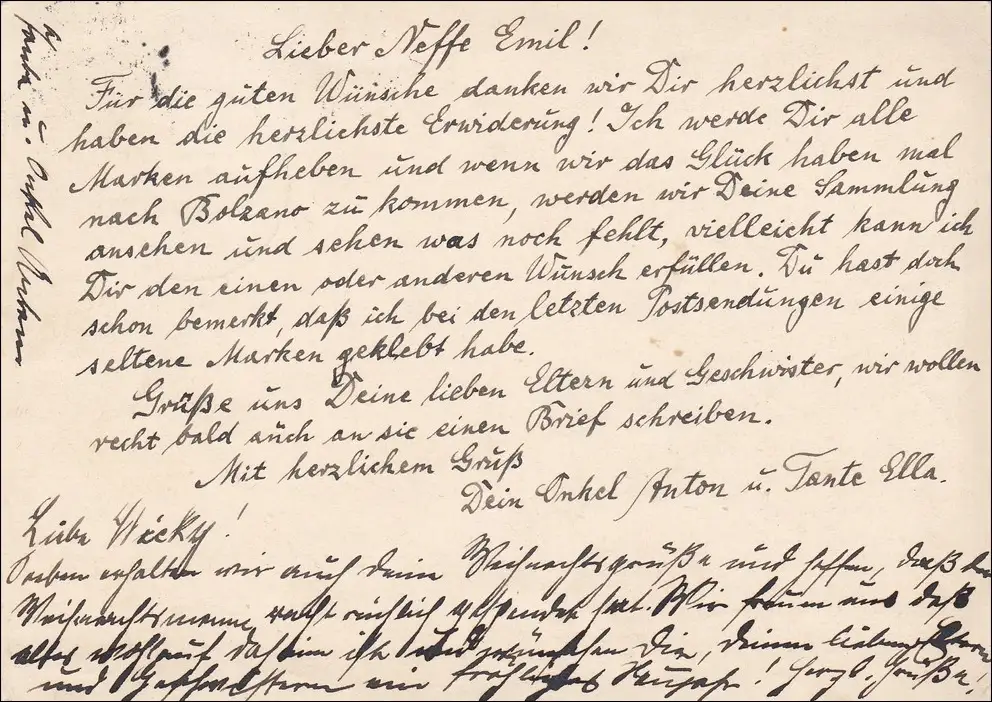 Lieber Neffe Emil!
Für die guten Wünsche danken wir Dir herzlichst und
haben die herzlichste Erwiderung! Ich werde Dir alle
Marken aufheben und wenn wir das Glück haben mal
nach Bolzano zu kommen, werden wir Deine Sammlung
ansehen und sehen was noch fehlt, vielleicht kann ich
Dir den einen oder anderen Wunsch erfüllen. Du hast doch
schon bemerkt, daß ich bei den letzten Postsendungen einige
seltene Marken geklebt habe.
Grüße uns Deine lieben Eltern und Geschwister, wir wollen
recht bald auch an sie einen Brief schreiben.
Mit herzlichem Gruß
Dein Onkel Anton u. Tante Ella.
Liebe Wicky!
Soeben erhalten wir auch deine Weihnachtsgrüße und hoffen, daß der
Weihnachtsmann recht reichlich gespendet hat. Wir freuen uns daß
alles wohlauf daheim ist und wünschen Dir, deinen lieben Eltern
und Geschwistern ein fröhliches Neujahr! Herzl. Grüße!
Tante u. Onkel